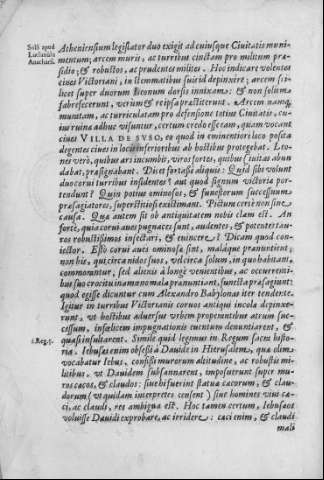 Solō apud
Lucianum
Anachars.
Atheniensium legislator duo exigit ad cuiusque Ciuitatis muni-
mentum; arcem muris, ac turribus cinctam pro militum præ-
sidio; & robustos, ac prudentes milites. Hoc indicare volentes
ciues Victoriani, in stemmatibus suis id depinxêre; arcem sci-
licet super duorum leonum dorsis innixam: & non solùm
fabrefecerunt, verùm & reipsa præstiterunt. Arcem namq;
munitam, ac turriculatam pro defensione totius Ciuitatis, cu-
ius ruina adhuc visuntur, certum credo esse eam, quam vocant
ciues VILLA DE SVSO, eo quòd in eminentiori loco posita
degentes ciues in loci inferioribus ab hostibus protegebat. Leo-
nes verò, quibus arx incumbit, viros fortes, quibus ciuitas abun-
dabat, præsignant. Dicet fortasse aliquis: Quid sibi volunt
duo corui turribus insidentes? aut quod signum victoriæ por-
tendunt? Quin potius ominosos, & funestorum successuum
præsagiatores, superstitiosi existimant. Pictum certè non sine
causa. Quæ autem sit ob antiquitatem nobis clam est. An
fortè, quia corui aues pugnaces sunt, audentes, & potentes tau-
ros robustissimos insectari, & euincere? Dicam quod con-
iecto. Etsi corui aues ominosæ sint, malique prænuntiæ;
non his, qui circa nidos suos, vel circa solum, in quo habitant,
commorantur, sed alienis à longè venientibus, ac occurrenti-
bus suo crocitu in-a mala pranuntiant, iuncta tendentes:
quod egisse dicuntur cum Alexandro Babylonas iter tenderet.
Igitur in turribus Victorianis coruos antiqui incolæ depinxe-
runt, vt hostibus aduersus vrbem properantibus atrum suc-
cessum, infœlicem impugnationis euentum denuntiarent, &
quasi insultarent. Simile quid legimus in Regum sacra histo-
2.Reg.5.
ria. Iebusæi enim obsessi à Dauide in Hierusalem, quæ olim
vocabatur Iebus, confisi murorum altitudine, ac robustis mi-
litibus, vt Dauidem subsannarent, imposuerunt super mu-
ros cæcos, & claudos: siue hi fuerint statuæ cæcorum, & clau-
dorum (vt quidam interpretes censent) siue homines viui cæ-
ci, ac claudi, res ambigua est. Hoc tamen certum, Iebusæos
voluisse Dauidi exprobrare, ac irridere: cæci enim, & claudi
mali